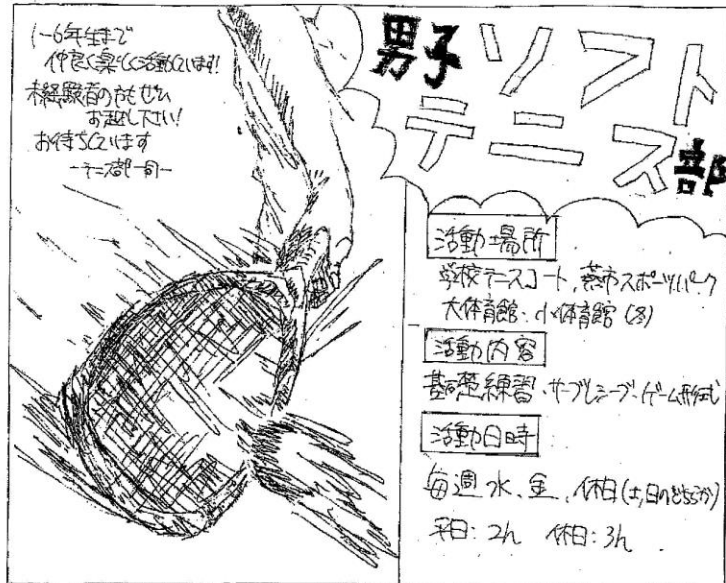 1~6年生まで
仲良く楽しく活動しています!
未経験者の方もぜひ
お越し下さい!
お待ちしています
-テニス部一同-
男子ソフト
テニス部
活動場所
学校テニスコート,燕市スポーツパーク
大体育館・小体育館(冬)
活動内容
基礎練習・サーブレシーブ・ゲーム形式
活動日時
毎週 水、金、休日(土,日のどちらか)
平日:2h 休日:3h